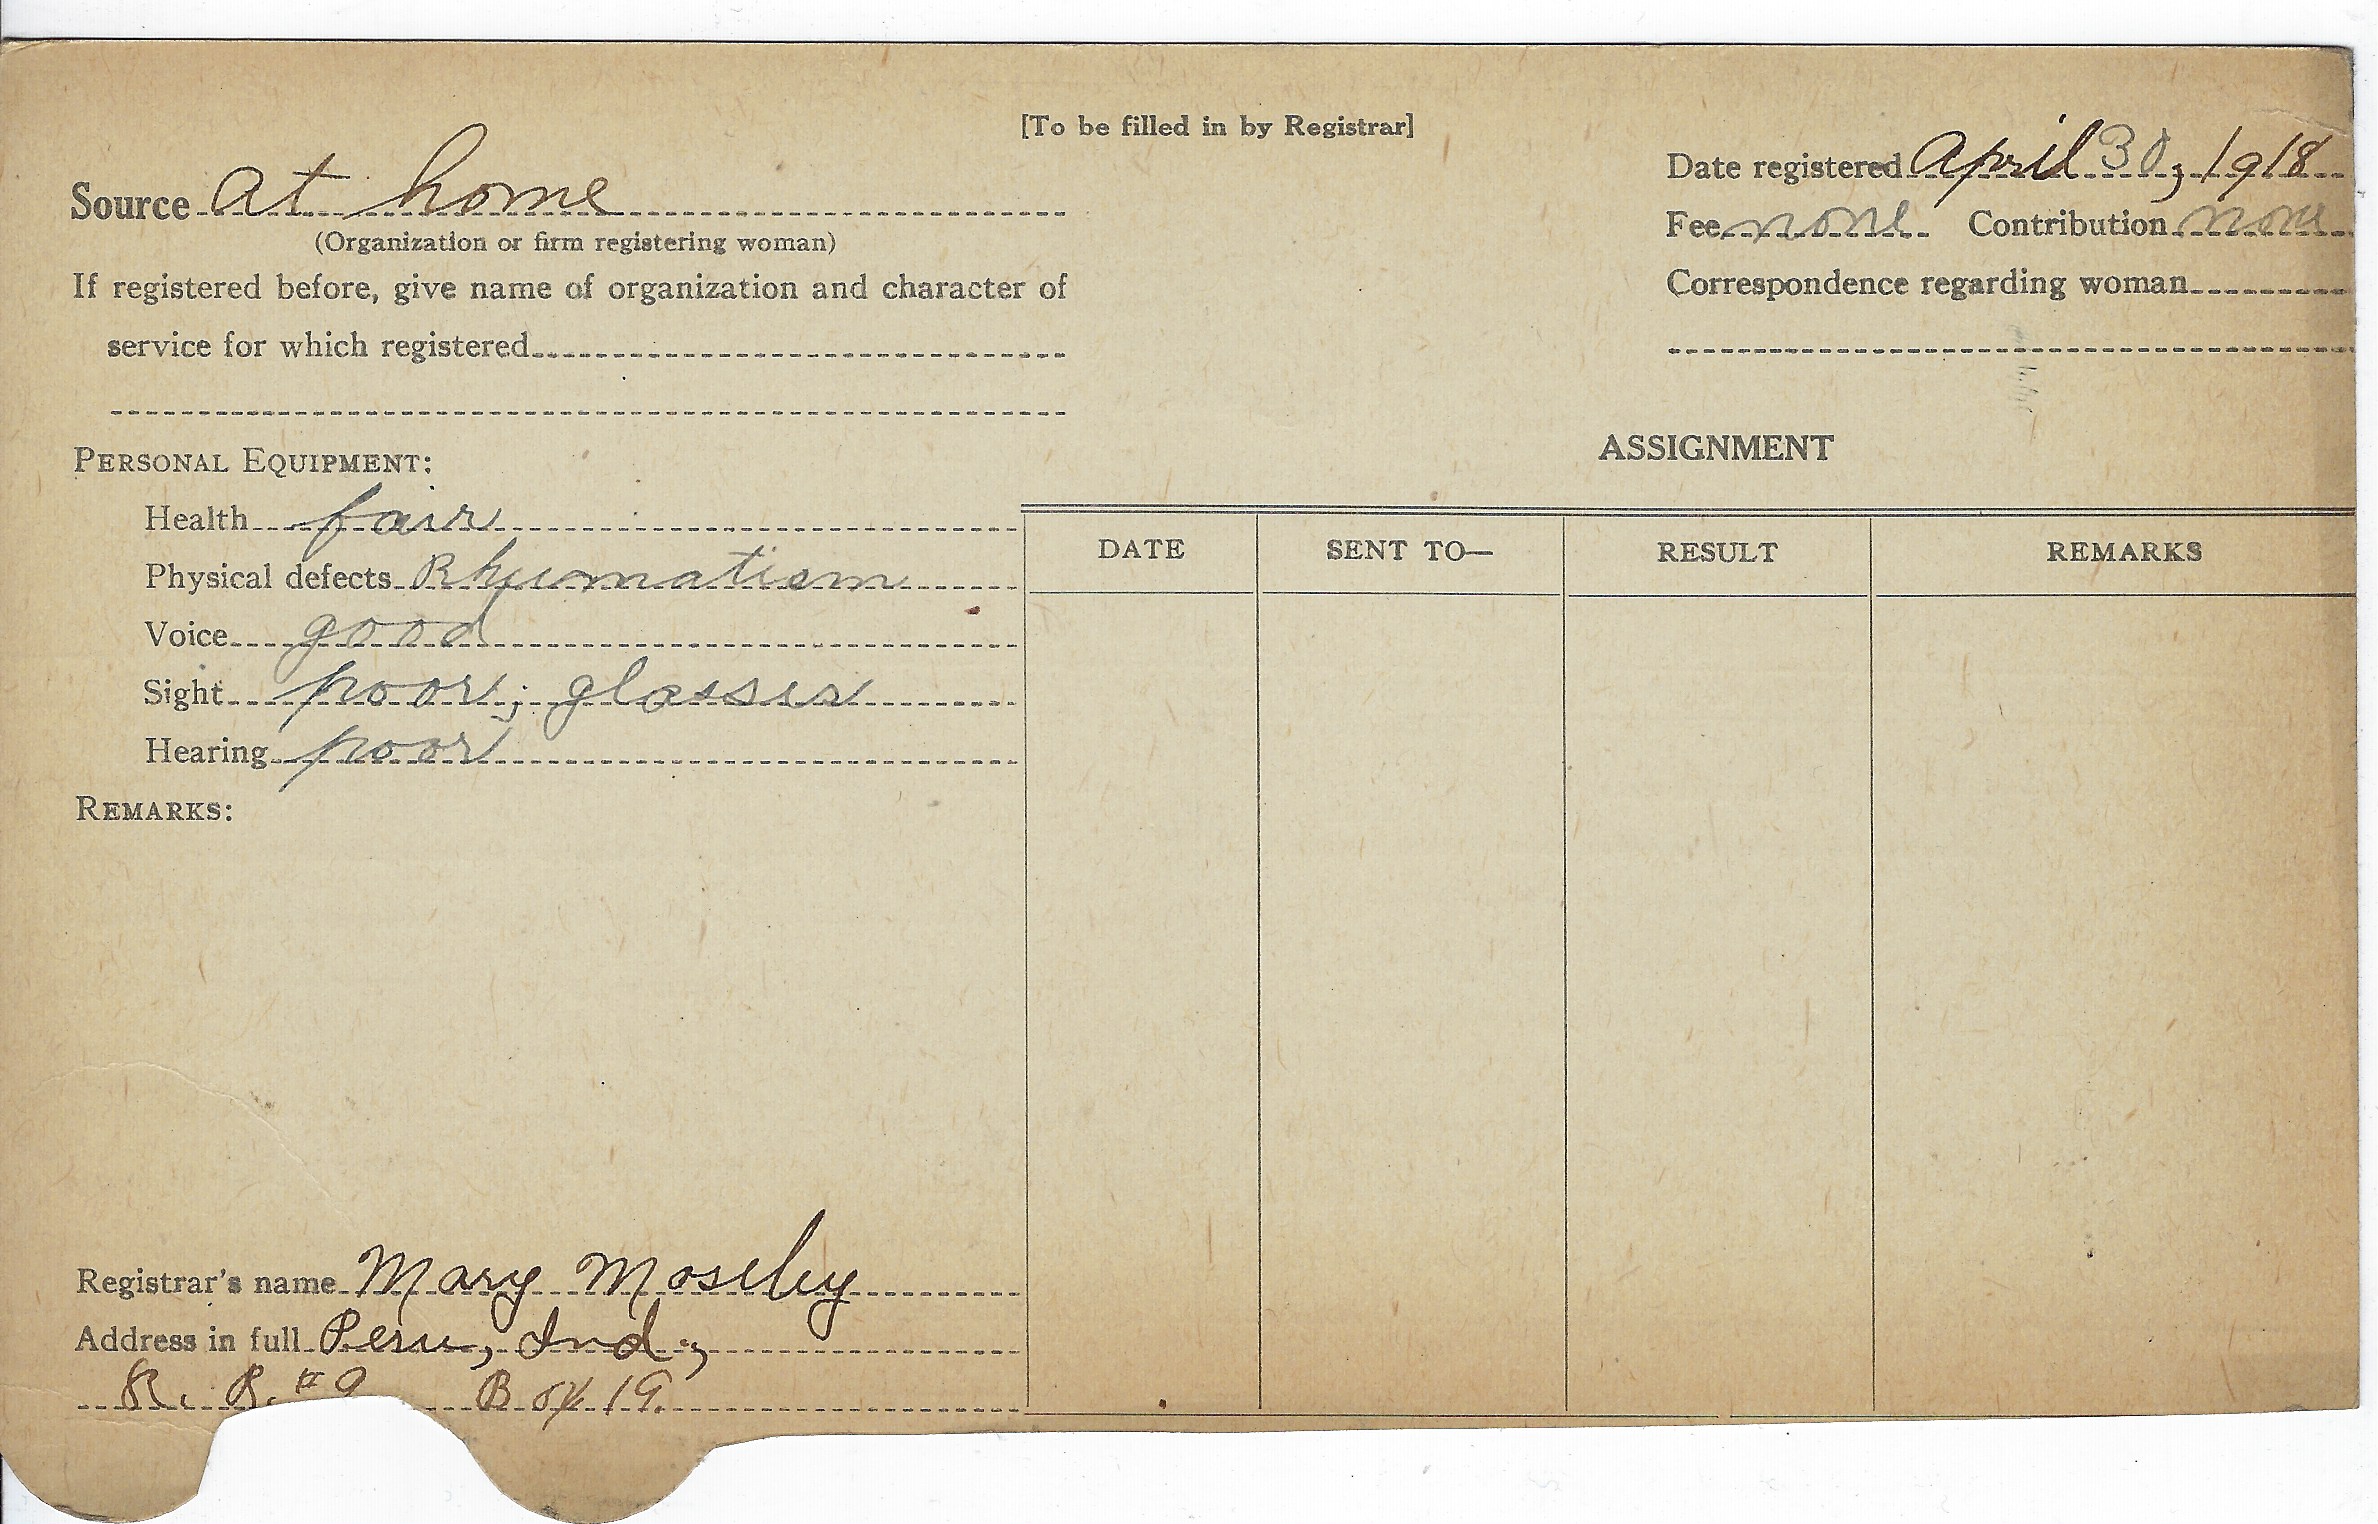 [To be filled in by Registrar]
Source at home
(Organization or firm registering woman)
If registered before, give name of organization and character of
service for which registered
Date registered April 30, 1918
Fee none Contribution none
Correspondence regarding woman
PERSONAL EQUIPMENT:
Health fair
Physical defects Rheumatism
Voice good
Sight poor; glasses
Hearing poor
REMARKS:
ASSIGNMENT
DATE SENT TO— RESULT REMARKS
Registrar's name Mary Moseley
Address in full Peru, Ind.,
R. R. # Box 19.